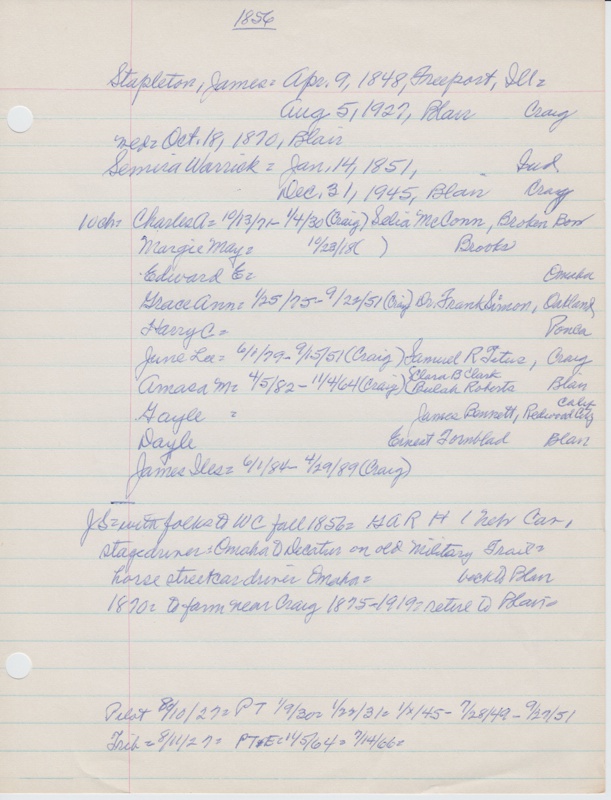 1856
Stapleton, James = Apr. 9, 1848, Freeport, Ill =
Aug 5, 1927, Blair Craig
med = Oct. 18, 1870, Blair
Semira Warrick = Jan. 14, 1851, Ind
Dec. 31, 1945, Blair Craig
10ch = Charles A = 10/13/71 - 1/4/30 (Craig) Selia McConn, Broken Bow
Margie May = 10/23/18 ( ) Brooks
Edward E = Omaha
Grace Ann = 1/25/75 - 9/22/51 (Craig) Dr. Frank Simon, Oakland
Harry C = Ponca
June Lee = 6/1/79 - 9/15/51 (Craig) Samuel R Titus, Craig
Amasa M = 4/5/82 - 11/4/64 (Craig) Clara B Clark Beulah Roberts Blair
Gayle = James Bennett, Redwood City Calif
Dayle Ernest Fornblad Blair
James Iles = 6/1/84 - 4/29/89 (Craig)
JS = with folks to WC fall 1856 = GAR H 1 Nebr Cav,
stagedriver = Omaha to Decatur on old Military Trail =
horse streetcar driver Omaha = back to Blair
1870 = to farm near Craig 1875-1919 = retire to Blair =
Pilot 8/10/27 = PT 1/9/30 = 1/22/31 = 1/8/45 - 7/28/49 - 9/27/51
Trib = 8/11/27 = PT&E = 11/5/64 = 7/14/66 =